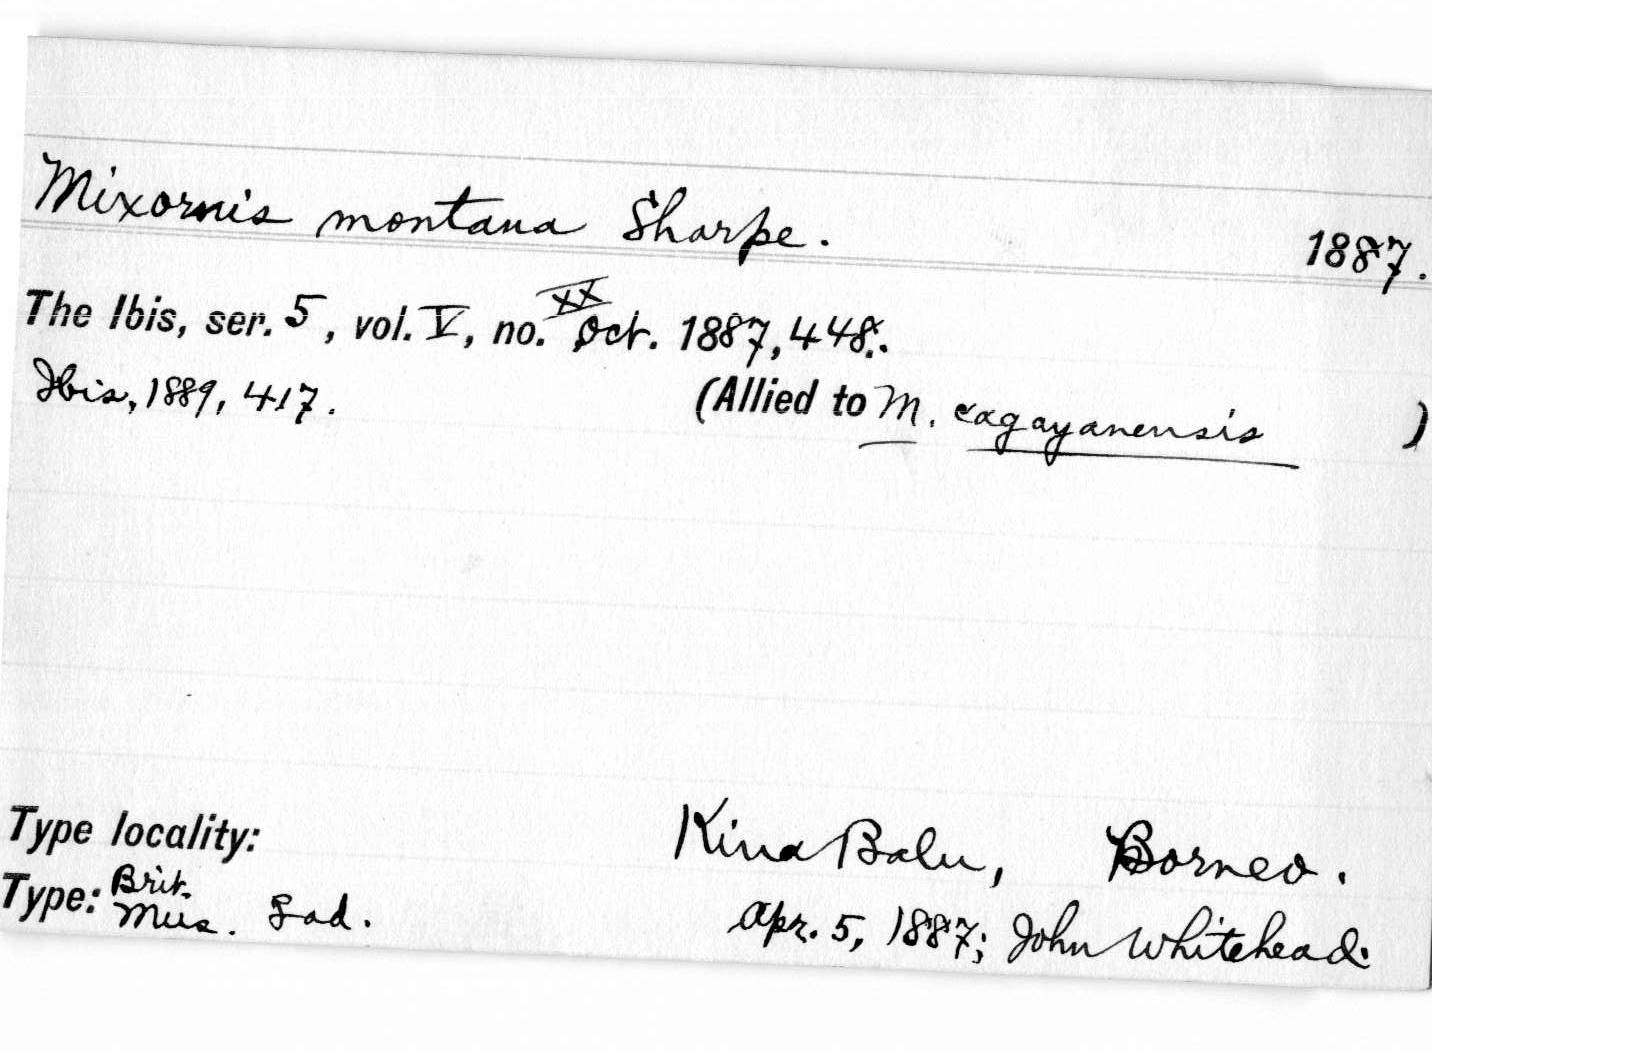 Mixornis montana Sharpe. 1887.
The Ibis, ser. 5, vol. V, no. XX Oct. 1887, 448.
Ibis, 1889, 417. (Allied to M. cagayanensis )
Type locality: Kina Balu, Borneo.
Type: Brit. Mus. ♀ ad. Apr. 5, 1887; John Whitehead.